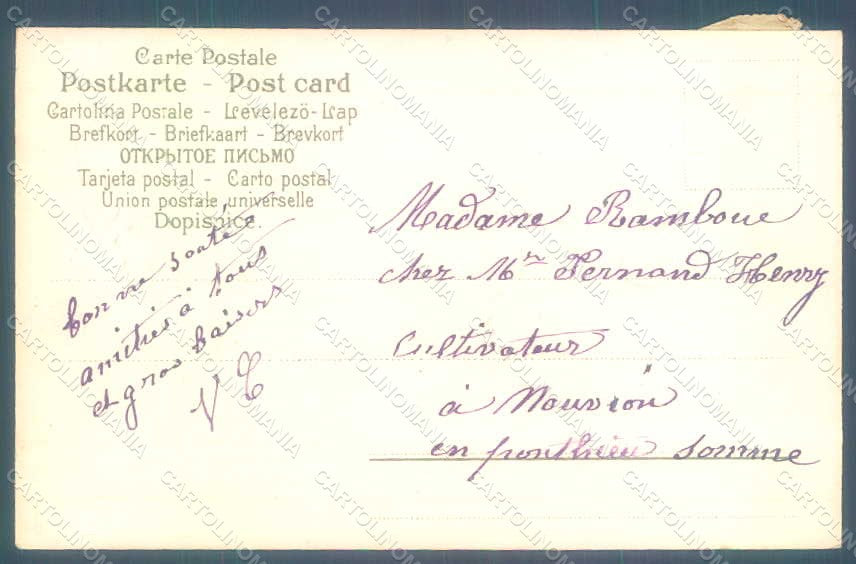 Carte Postale
Postkarte - Post card
Cartolina Postale - Levelezö-Lap
Brefkort - Briefkaart - Brevkort
ОТКРЫТОЕ ПИСЬМО
Tarjeta postal - Carto postal
Union postale universelle
Dopisnice.
bonne santé
amitiés à tous
et gros baisers
Madame Ramboue
chez Mr Fernand Henry
Cultivateur
à Nouvion
en ponthieu somme
CARTOLINOMANIA